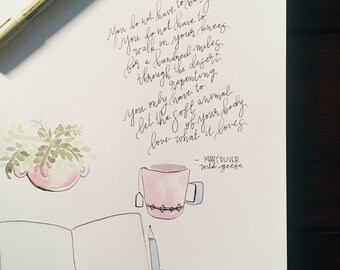 You do not have to be good.
You do not have to
walk on your knees
for a hundred miles
through the desert
repenting
You only have to
let the soft animal
of your body
love what it loves
- MARY OLIVER
wild geese